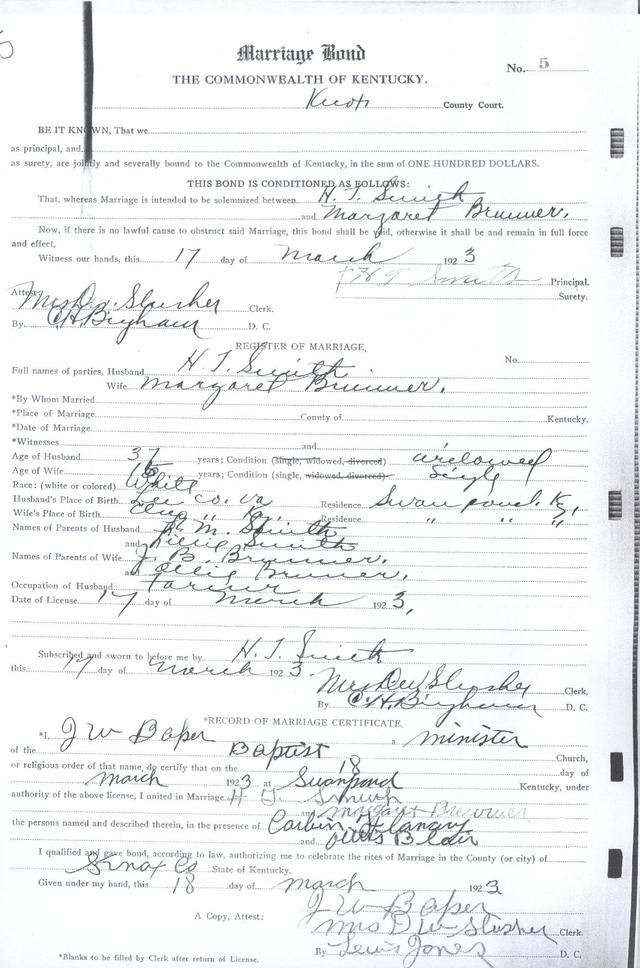 Marriage Bond
No. 5
THE COMMONWEALTH OF KENTUCKY.
Knox County Court.
BE IT KNOWN, That we
as principal, and
as surety, are jointly and severally bound to the Commonwealth of Kentucky, in the sum of ONE HUNDRED DOLLARS.
THIS BOND IS CONDITIONED AS FOLLOWS:
That, whereas Marriage is intended to be solemnized between H. T. Smith
and Margaret Brunner.
Now, if there is no lawful cause to obstruct said Marriage, this bond shall be void, otherwise it shall be and remain in full force
and effect,
Witness our hands, this 17 day of March 1923
H T Smith Principal.
Surety.
Attest Mrs D.W. Slusher Clerk.
By C H Bingham D. C.
REGISTER OF MARRIAGE,
No.
Full names of parties, Husband H. T. Smith
Wife Margaret Brunner.
*By Whom Married
*Place of Marriage County of Kentucky.
*Date of Marriage
*Witnesses and
Age of Husband 37 years; Condition (single, widowed, divorced) widowed
Age of Wife 16 years; Condition (single, widowed, divorced) Single
Race: (white or colored) White
Husband's Place of Birth Lee Co. Va Residence Swan pond Ky,
Wife's Place of Birth " Residence " " "
Names of Parents of Husband M. Smith
and Smith
Names of Parents of Wife J. B. Brunner.
and Brunner.
Occupation of Husband Farmer
Date of License 17 day of March 1923,
Subscribed and sworn to before me by H. T. Smith
this 17 day of March 1923.
Mrs D.W. Slusher Clerk,
By C.H. Bingham D. C.
*RECORD OF MARRIAGE CERTIFICATE,
*I, J W Baper a minister
of the Baptist Church,
or religious order of that name, do certify that on the 18 day of
March 1923 at Swanpond Kentucky, under
authority of the above license, I united in Marriage H T. Smith
and Margaret Brunner
the persons named and described therein, in the presence of Corbin
and Blair
I qualified and gave bond, according to law, authorizing me to celebrate the rites of Marriage in the County (or city) of
Knox Co State of Kentucky.
Given under my hand, this 18 day of March 1923
J W Baper
A Copy, Attest: Mrs D W Slusher Clerk.
By Lewis Jones D. C.
*Blanks to be filled by Clerk after return of License.